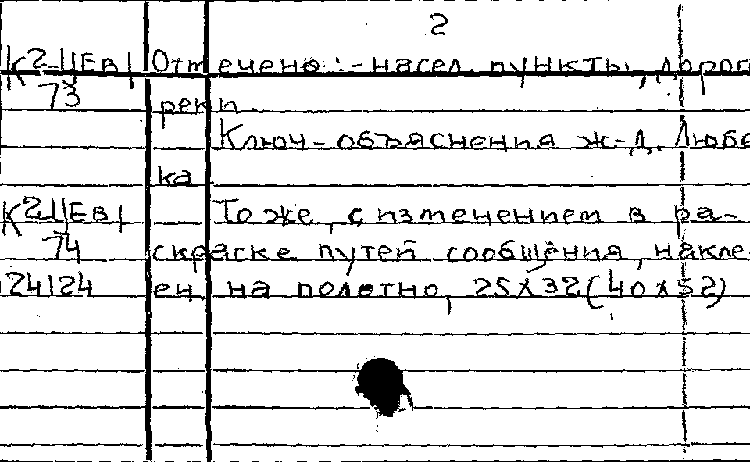 2
К2-ЦЕВ| Отмечено:- насел. пункты, дорог
73 реки
Ключ-объяснения ж-д. Любе
ка
К2-ЦЕВ| То же, с изменением в ра-
74 скраске путей сообщения, накле-
24124 ен на полотно, 25х32(40х52)